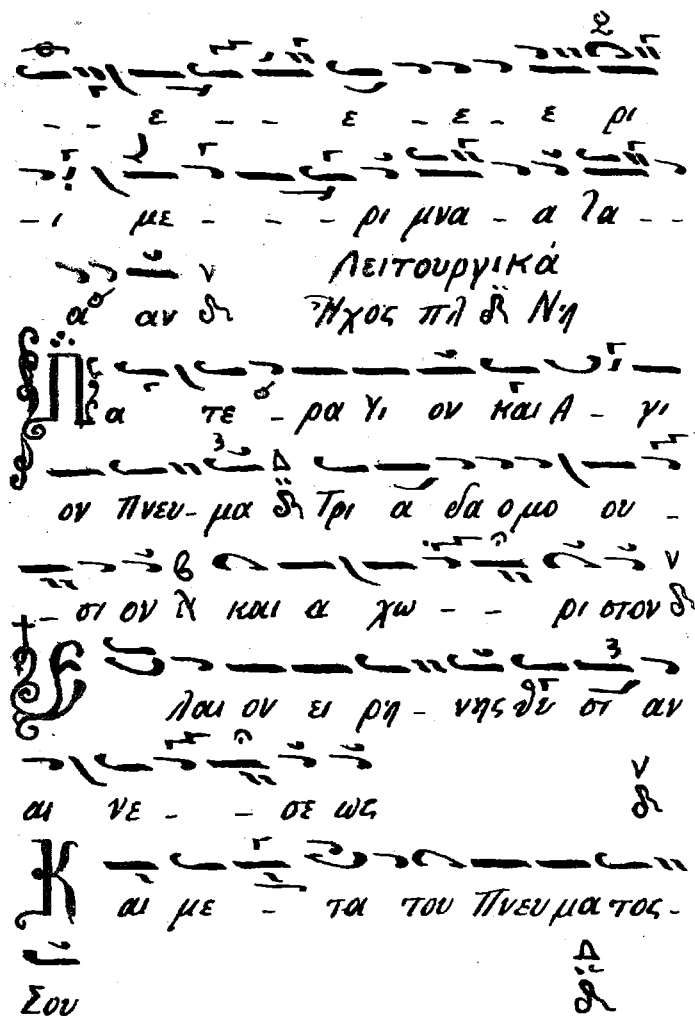 - - ε - - ε - ε - ε ρι
- ι με - - - ρι μνα - α Τα - -
α αν Λειτουργικά
Ἦχος πλ Νη
Πα τε - ρα Υι ον και Α - γι
ον Πνευ - μα Τρι α δα ομο ου -
- σι ον και α χω - - ρι στον
Ελαι ον ει ρη - νης θυ σι αν
αι νε - - σε ως
Και με - τα του Πνευ μα τος -
Σου